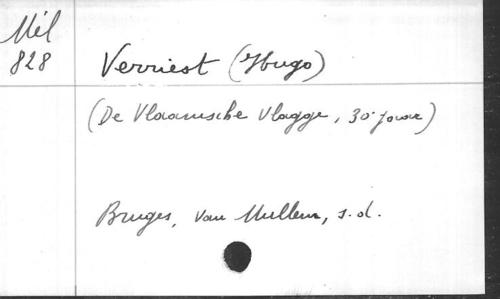 Mél
828
Verriest (Hugo)
(De Vlaamsche Vlagge, 30e jaar)
Bruges, Van Mullem, s.d.